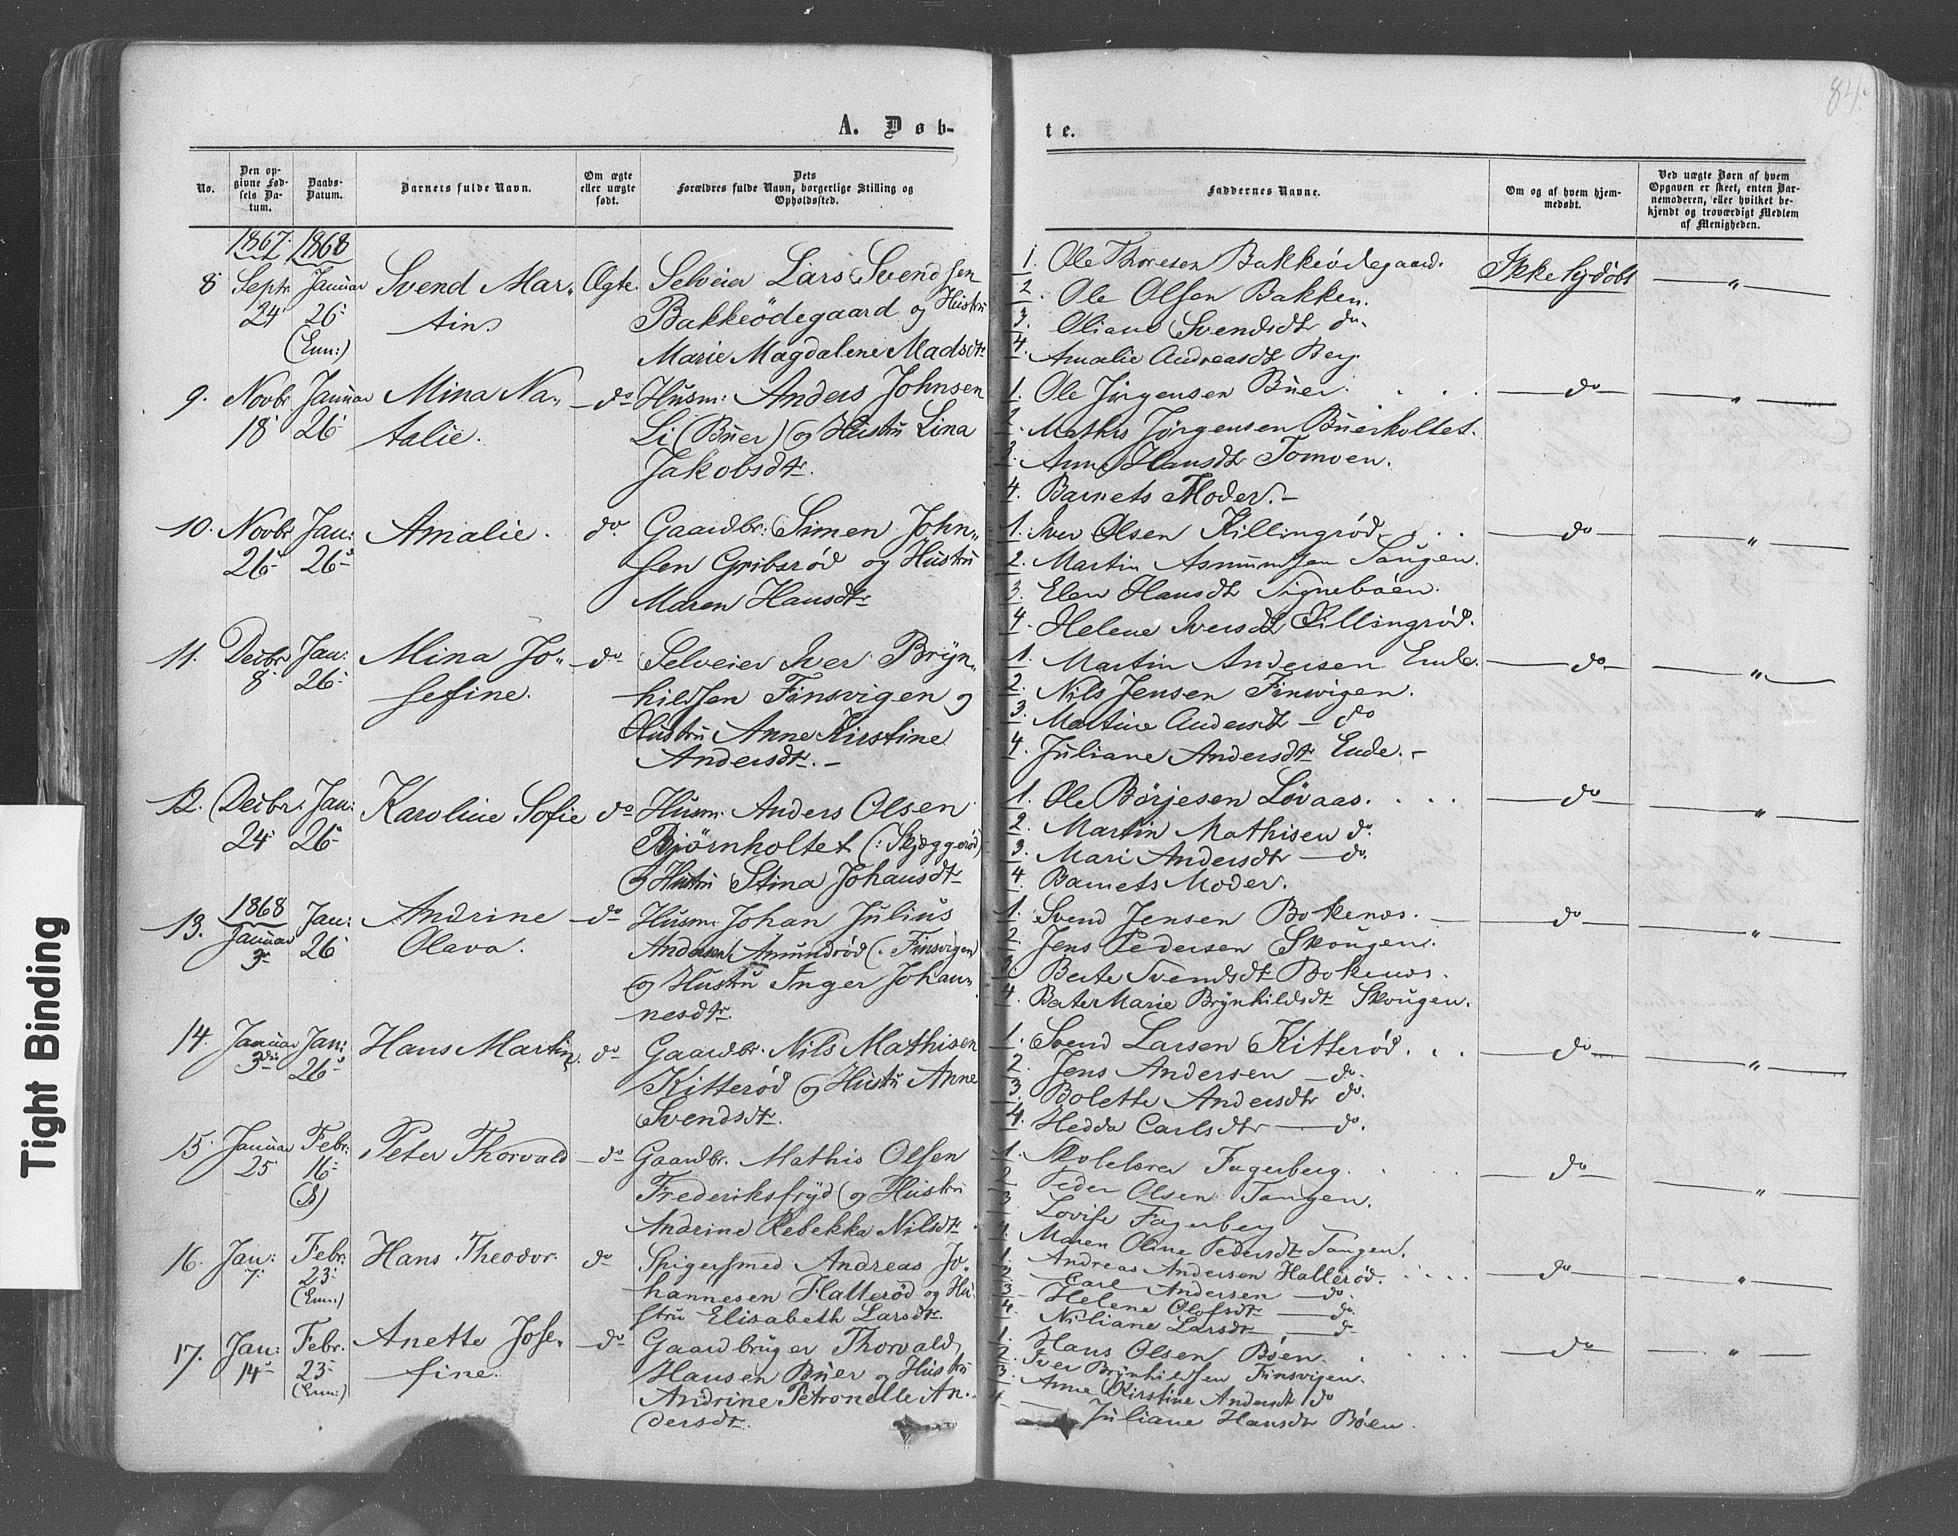 84.
A. Døb-
te.
No.
Den op-
givne Fød-
sels Da-
tum.
Daabs-
Datum.
Barnets fulde Navn.
Om ægte
eller uægte
født.
Dets
Forældres fulde Navn, borgerlige Stilling og
Opholdssted.
Faddernes Navne.
Om og af hvem hjem-
medøbt.
Ved uægte Børn af hvem
Opgaven er skeet, enten Bar-
nemoderen, eller hvilket be-
kjendt og troværdigt Medlem
af Menigheden.
1867. 1868
8 Septr. Januar Svend Mar- Ægte. Selveier Lars Svendsen
24 26 tin. Bakkeødegaard og Hustru
(Enn:) Marie Magdalene Madsdtr.
1. Ole Thoresen Bakkeødegaard. Ikke hjdøbt — " —
2. Ole Olsen Bakken.
3. Oliane Svendsdtr do.
4. Amalie Andreasdtr Berg.
9. Novbr Januar Mina Na- do Husm: Anders Johnsen
18 26 talie. Li (Buer) og Hustru Lina
Jakobsdtr.
1. Ole Jørgensen Buer. do — " —
2. Mathis Jørgensen Buerholtet.
3. Anne Hansdtr Tomoen.
4. Barnets Moder. —
10. Novbr Jan: Amalie. do. Gaardbr: Simen John-
26 26 sen Gribsrød og Hustru
Maren Hansdtr.
1. Iver Olsen Killingrød. do — " —
2. Martin Asmundsen Saugen.
3. Elen Hansdtr Signebøen.
4. Helene Iversdtr Killingrød.
11. Decbr Jan: Mina Jo- do Selveier Iver Brÿn-
8 26 sefine. hildsen Finsvigen og
Hustru Anne Kirstine
Andersdtr. —
1. Martin Andersen Ende. do — " —
2. Nils Jensen Finsvigen.
3. Martine Andersdtr — do
4. Juliane Andersdtr Ende. —
12. Decbr. Jan: Karoline Sofie do Husm: Anders Olsen
24 26 Bjørnholtet (: Skjæggerød)
og Hustru Stina Johansdtr.
1. Ole Börjesen Løvaas. do — " —
2. Martin Mathisen do.
3. Mari Andersdtr — do.
4. Barnets Moder.
1868
13. Januar Jan: Andrine do Husm: Johan Julius
3 26 Olava. Andersen Amundrød (: Finsvigen)
og Hustru Inger Johan-
nesdtr.
1. Svend Jensen Bokenæs. do — " —
2. Jens Pedersen Skougen.
3. Berte Svendsdtr Bokenæs.
4. Berte Marie Brÿnhildsdtr Skougen.
14. Januar Jan: Hans Martin. do Gaardbr. Nils Mathisen
3die 26 Kitterød og Hustru Anne
Svendsdtr.
1. Svend Larsen Kitterød. do — " —
2. Jens Andersen — do.
3. Bolette Andersdtr do.
4. Hedda Carlsdtr — do.
15. Januar Febr. Peter Thorvald do Gaardbr. Mathis Olsen
25 16 Frederiksfrÿd og Hustru
Andrine Rebekka Nilsdtr.
1. Skolelærer Fagerberg. do — " —
2. Peder Olsen Tangen.
3. Lovise Fagerberg
4. Maren Oline Pedersdtr Tangen.
16. Jan: Febr. Hans Theodor. do Spigersmed Andreas Jo-
7 23 hannesen Hallerød og Hu-
(Enn:) stru Elisabeth Larsdtr.
1. Andreas Andersen Hallerød. do — " —
2. Carl Andersen — do.
3. Helene Olofsdtr — do.
4. Niliane Larsdtr — do
17. Jan: Febr. Anette Jose- do Gaardbruger Thorvald
14 23 fine. Hansen Buer og Hustru
(Enn:) Andrine Petronelle An-
dersdtr.
1. Hans Olsen Bøen. do — " —
2. Iver Brÿnhildsen Finsvigen.
3. Anne Kirstine Andersdtr do
4. Juliane Hansdtr Bøen.
Tight Binding